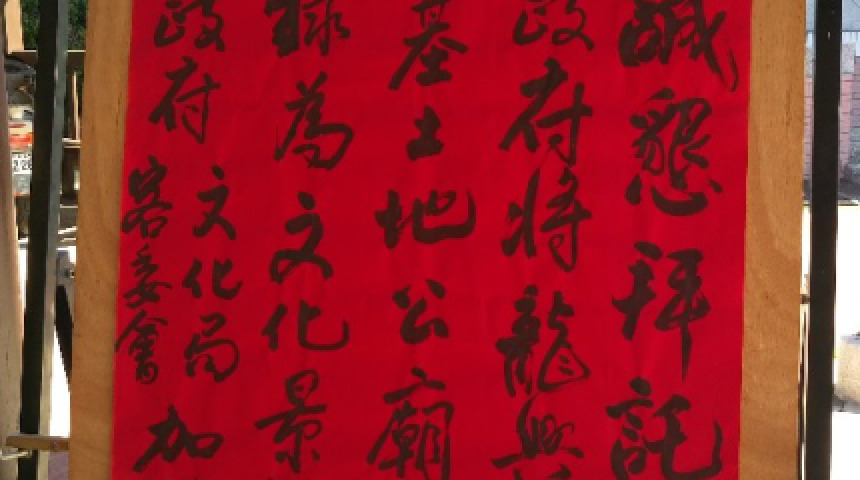 誠懇拜託
政府將龍興
基土地公廟
錄為文化景
政府文化局客委會加